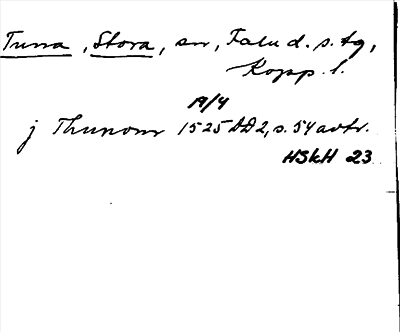 Tuna, Stora, sn, Falu d. s. tg,
Kopp. l.
19/4
j Thunom 1525 DD2, s. 54 avtr.
HSkH 23